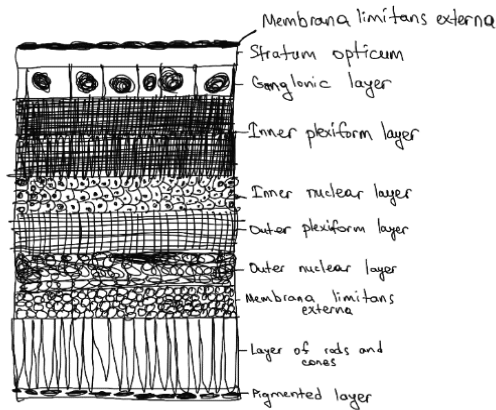 Membrana limitans externa
Stratum opticum
Ganglonic layer
Inner plexiform layer
Inner nuclear layer
Outer plexiform layer
Outer nuclear layer
Membrana limitans
externa
Layer of rods and
cones
Pigmented layer